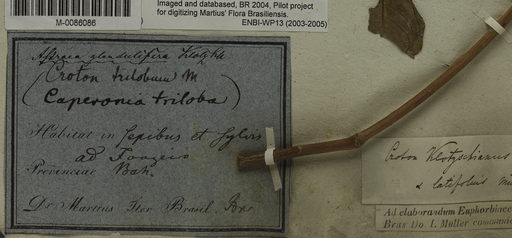 M-0086086
Imaged and databased, BR 2004, Pilot project
for digitizing Martius' Flora Brasiliensis.
ENBI-WP13 (2003-2005)
Astraea glandulifera Klotzsch
(Croton trilobum M
(Caperonia triloba)
Habitat in sepibus et sylvis
ad
Provinciae Bah.
Dr. Martius Iter Brasil.
Croton Klotzschianus
α latifolius
Ad elaborandum Euphorbiace
Bras Do. I. Müller communic